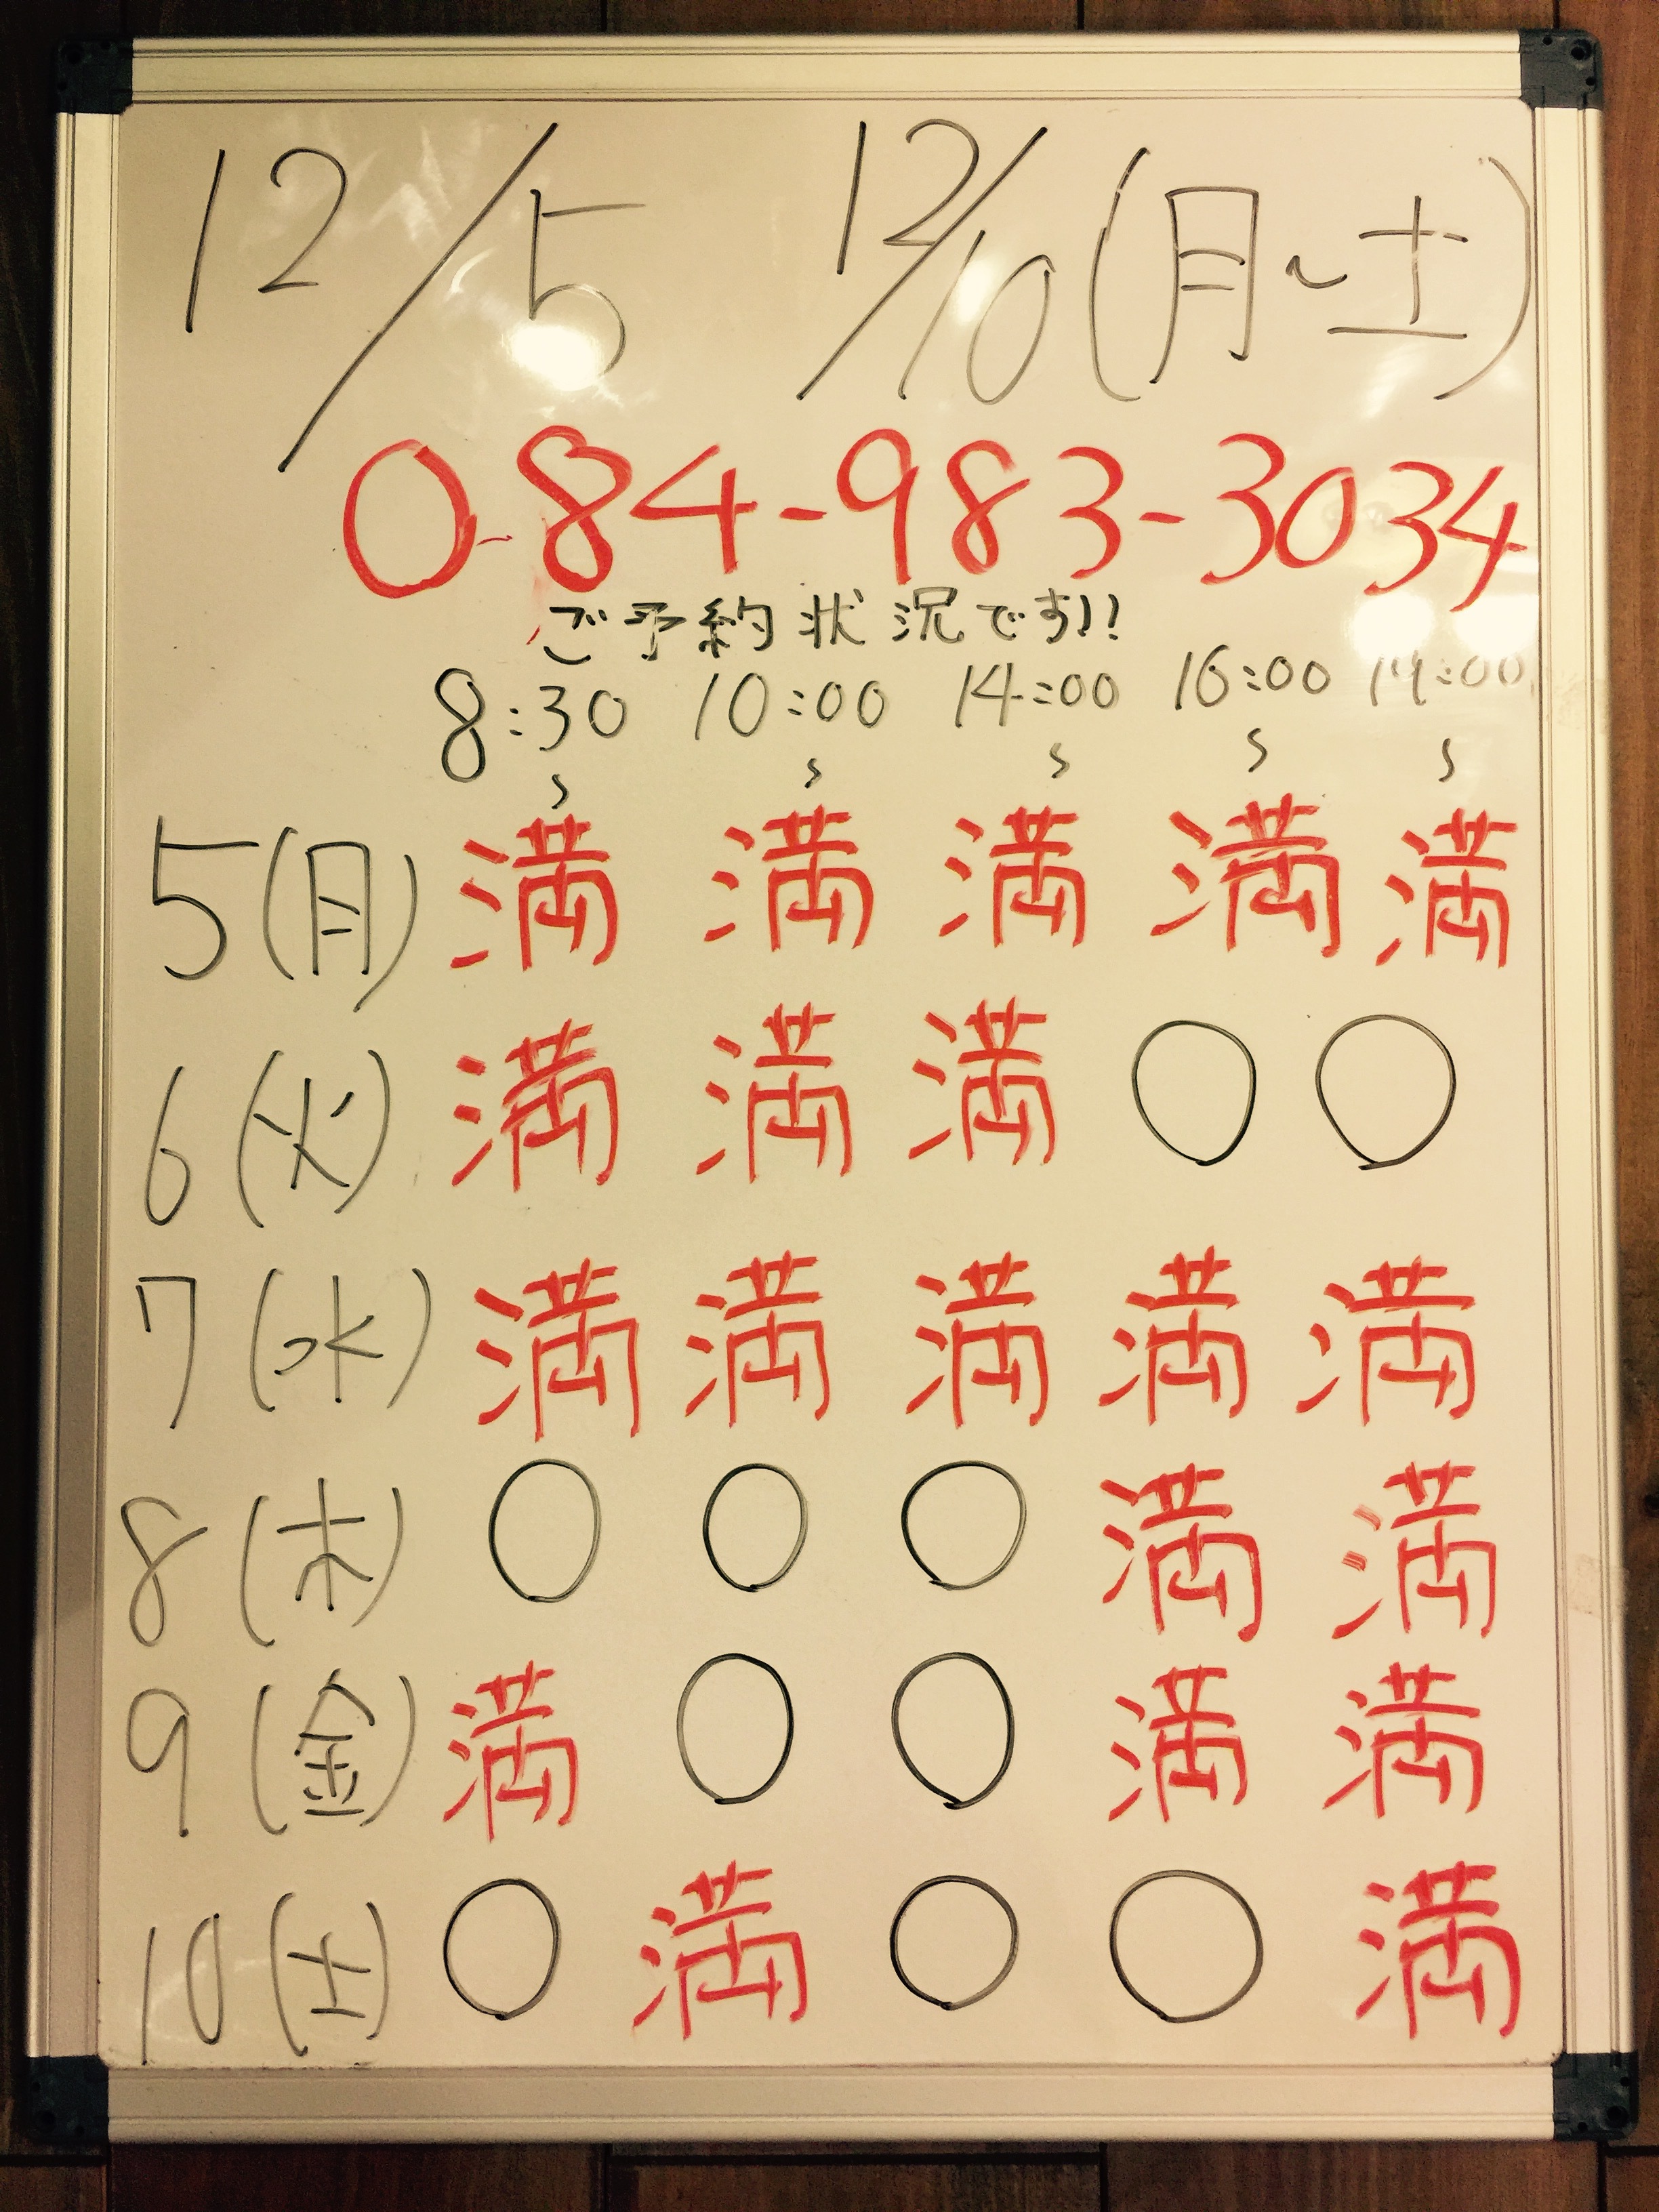 12/5 12/10(月~土)
0-84-983-3034
ご予約状況です!!
8:30 10:00 14:00 16:00
~ ~ ~ ~ ~
5(月) 満 満 満 満 満
6(火) 満 満 満 ○ ○
7(水) 満 満 満 満 満
8(木) ○ ○ ○ 満 満
9(金) 満 ○ ○ 満 満
10(土) ○ 満 ○ ○ 満